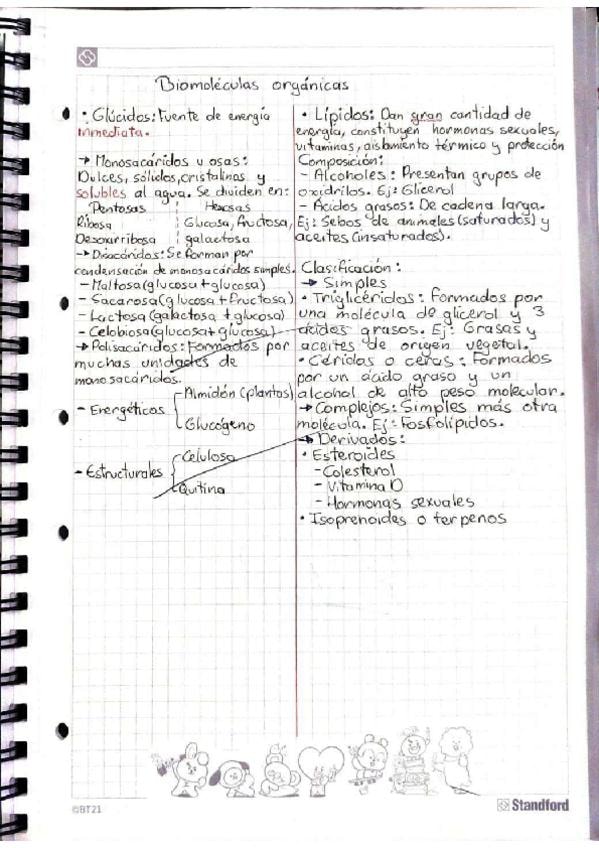 Biomoléculas orgánicas
• Glúcidos: Fuente de energía
inmediata.
→ Monosacáridos u osas:
Dulces, sólidos, cristalinos y
solubles al agua. Se dividen en:
Pentosas Hexosas
Ribosa Glucosa, fructosa,
Desoxirribosa galactosa
→ Disacáridos: Se forman por
condensación de monosacáridos simples.
- Maltosa (glucosa + glucosa)
- Sacarosa (glucosa + fructosa)
- Lactosa (galactosa + glucosa)
- Celobiosa (glucosa + glucosa)
→ Polisacáridos: Formados por
muchas unidades de
monosacáridos.
- Energéticos
Almidón (plantas)
Glucógeno
- Estructurales
Celulosa
Quitina
• Lípidos: Dan gran cantidad de
energía, constituyen hormonas sexuales,
vitaminas, aislamiento térmico y protección
Composición:
- Alcoholes: Presentan grupos de
oxidrilos. Ej: Glicerol
- Ácidos grasos: De cadena larga.
Ej: Sebos de animales (saturados) y
aceites (insaturados).
Clasificación:
→ Simples
• Triglicéridos: Formados por
una molécula de glicerol y 3
ácidos grasos. Ej: Grasas y
aceites de origen vegetal.
• Céridos o ceras: Formados
por un ácido graso y un
alcohol de alto peso molecular.
→ Complejos: Simples más otra
molécula. Ej: Fosfolípidos.
→ Derivados:
• Esteroides
- Colesterol
- Vitamina D
- Hormonas sexuales
• Isoprenoides o terpenos
©BT21
Standford